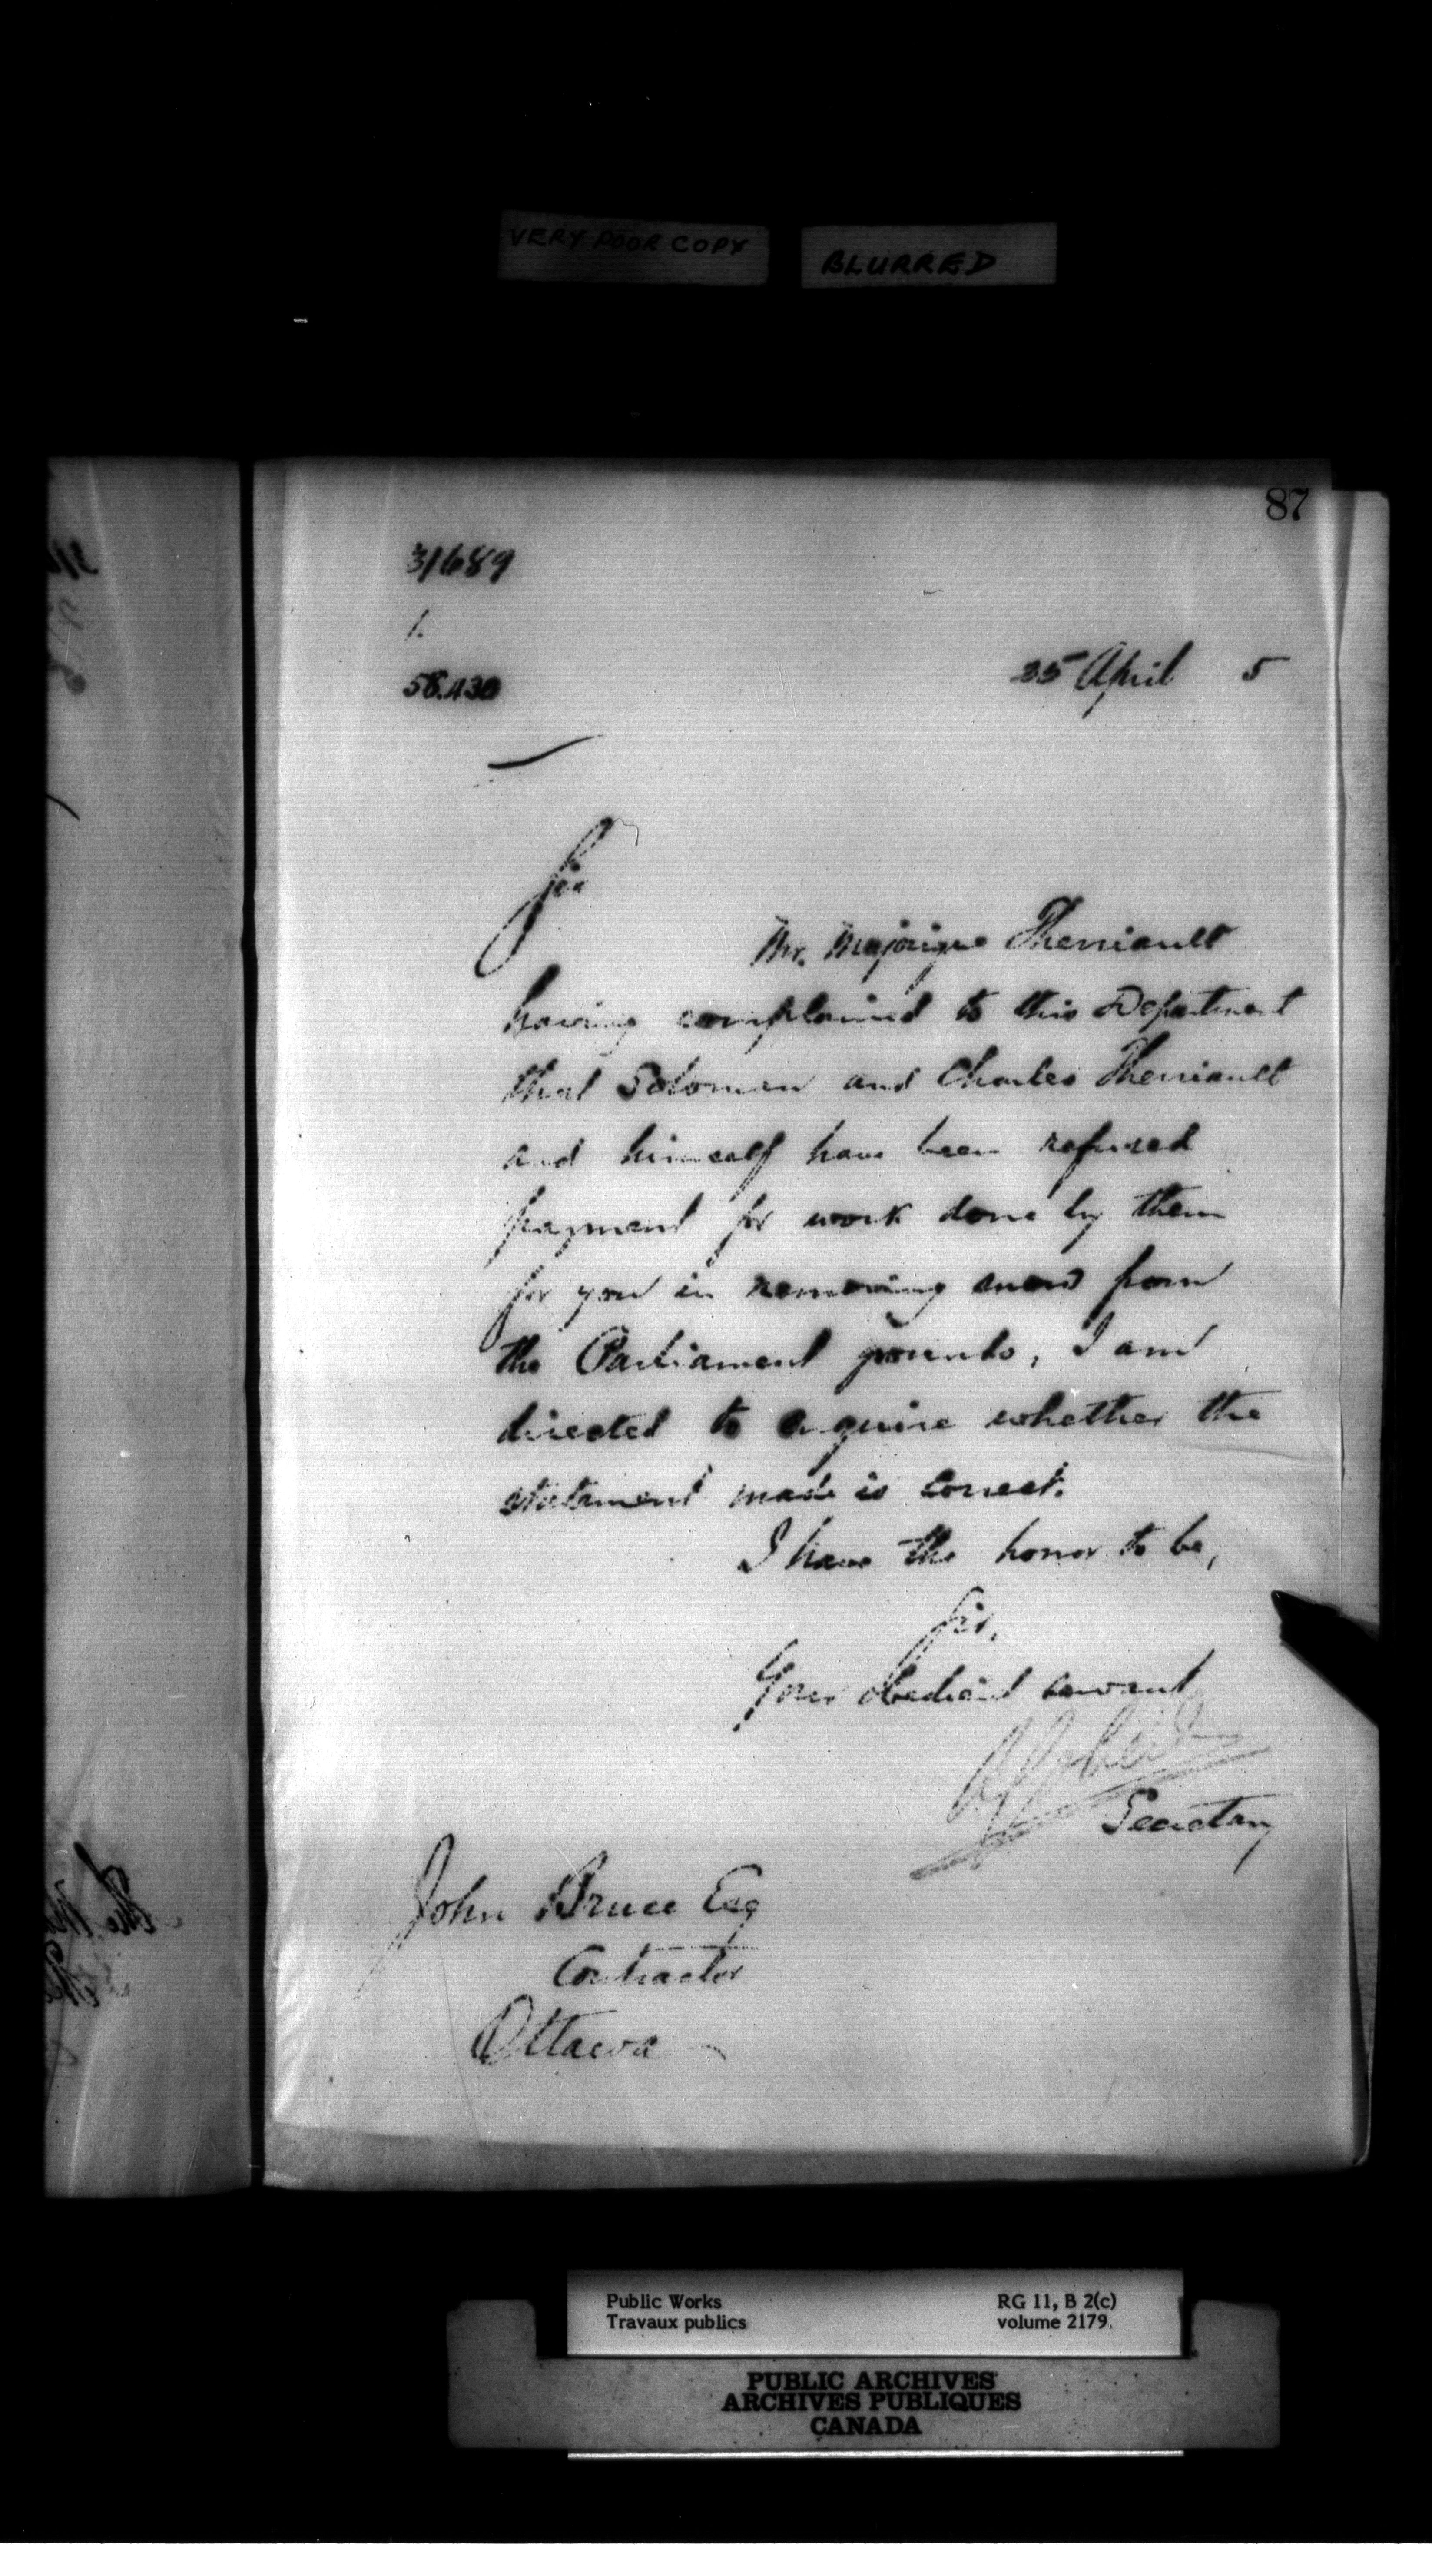 VERY POOR COPY
BLURRED
87
31689
1.
25 April 5
Sir
Mr. Majorique Therriault
having complained to this Department
that Solomon and Charles Therriault
and himself have been refused
payment for work done by them
for you in removing snow from
the Parliament grounds, I am
directed to enquire whether the
statement made is correct.
I have the honor to be,
Sir,
Your obedient servant
Secretary
John Bruce Esq
Contractor
Ottawa
Public Works
Travaux publics
RG 11, B 2(c)
volume 2179.
PUBLIC ARCHIVES
ARCHIVES PUBLIQUES
CANADA